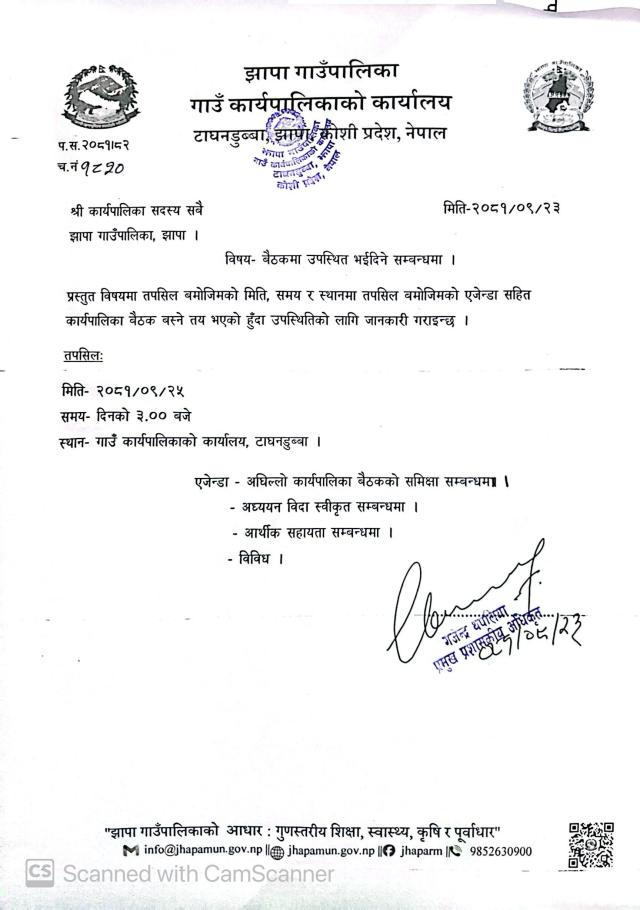 झापा गाउँपालिका
गाउँ कार्यपालिकाको कार्यालय
टाघनडुब्बा, झापा, कोशी प्रदेश, नेपाल
झापा गाउँपालिका
गाउँ कार्यपालिकाको कार्यालय
टाघनडुब्बा, झापा
कोशी प्रदेश, नेपाल
प.स.२०८१।८२
च.नं १८२०
श्री कार्यपालिका सदस्य सबै
मिति-२०८१/०९/२३
झापा गाउँपालिका, झापा ।
विषय- बैठकमा उपस्थित भईदिने सम्बन्धमा ।
प्रस्तुत विषयमा तपसिल बमोजिमको मिति, समय र स्थानमा तपसिल बमोजिमको एजेन्डा सहित
कार्यपालिका बैठक बस्ने तय भएको हुँदा उपस्थितिको लागि जानकारी गराइन्छ ।
तपसिलः
मिति- २०८१/०९/२५
समय- दिनको ३.०० बजे
स्थान- गाउँ कार्यपालिकाको कार्यालय, टाघनडुब्बा ।
एजेन्डा - अघिल्लो कार्यपालिका बैठकको समिक्षा सम्बन्धमा ।
- अध्ययन विदा स्वीकृत सम्बन्धमा ।
- आर्थीक सहायता सम्बन्धमा ।
- विविध ।
गजेन्द्र थपलिया
प्रमुख प्रशासकीय अधिकृत
"झापा गाउँपालिकाको आधार : गुणस्तरीय शिक्षा, स्वास्थ्य, कृषि र पूर्वाधार"
info@jhapamun.gov.np || jhapamun.gov.np || jhaparm || 9852630900
CS Scanned with CamScanner